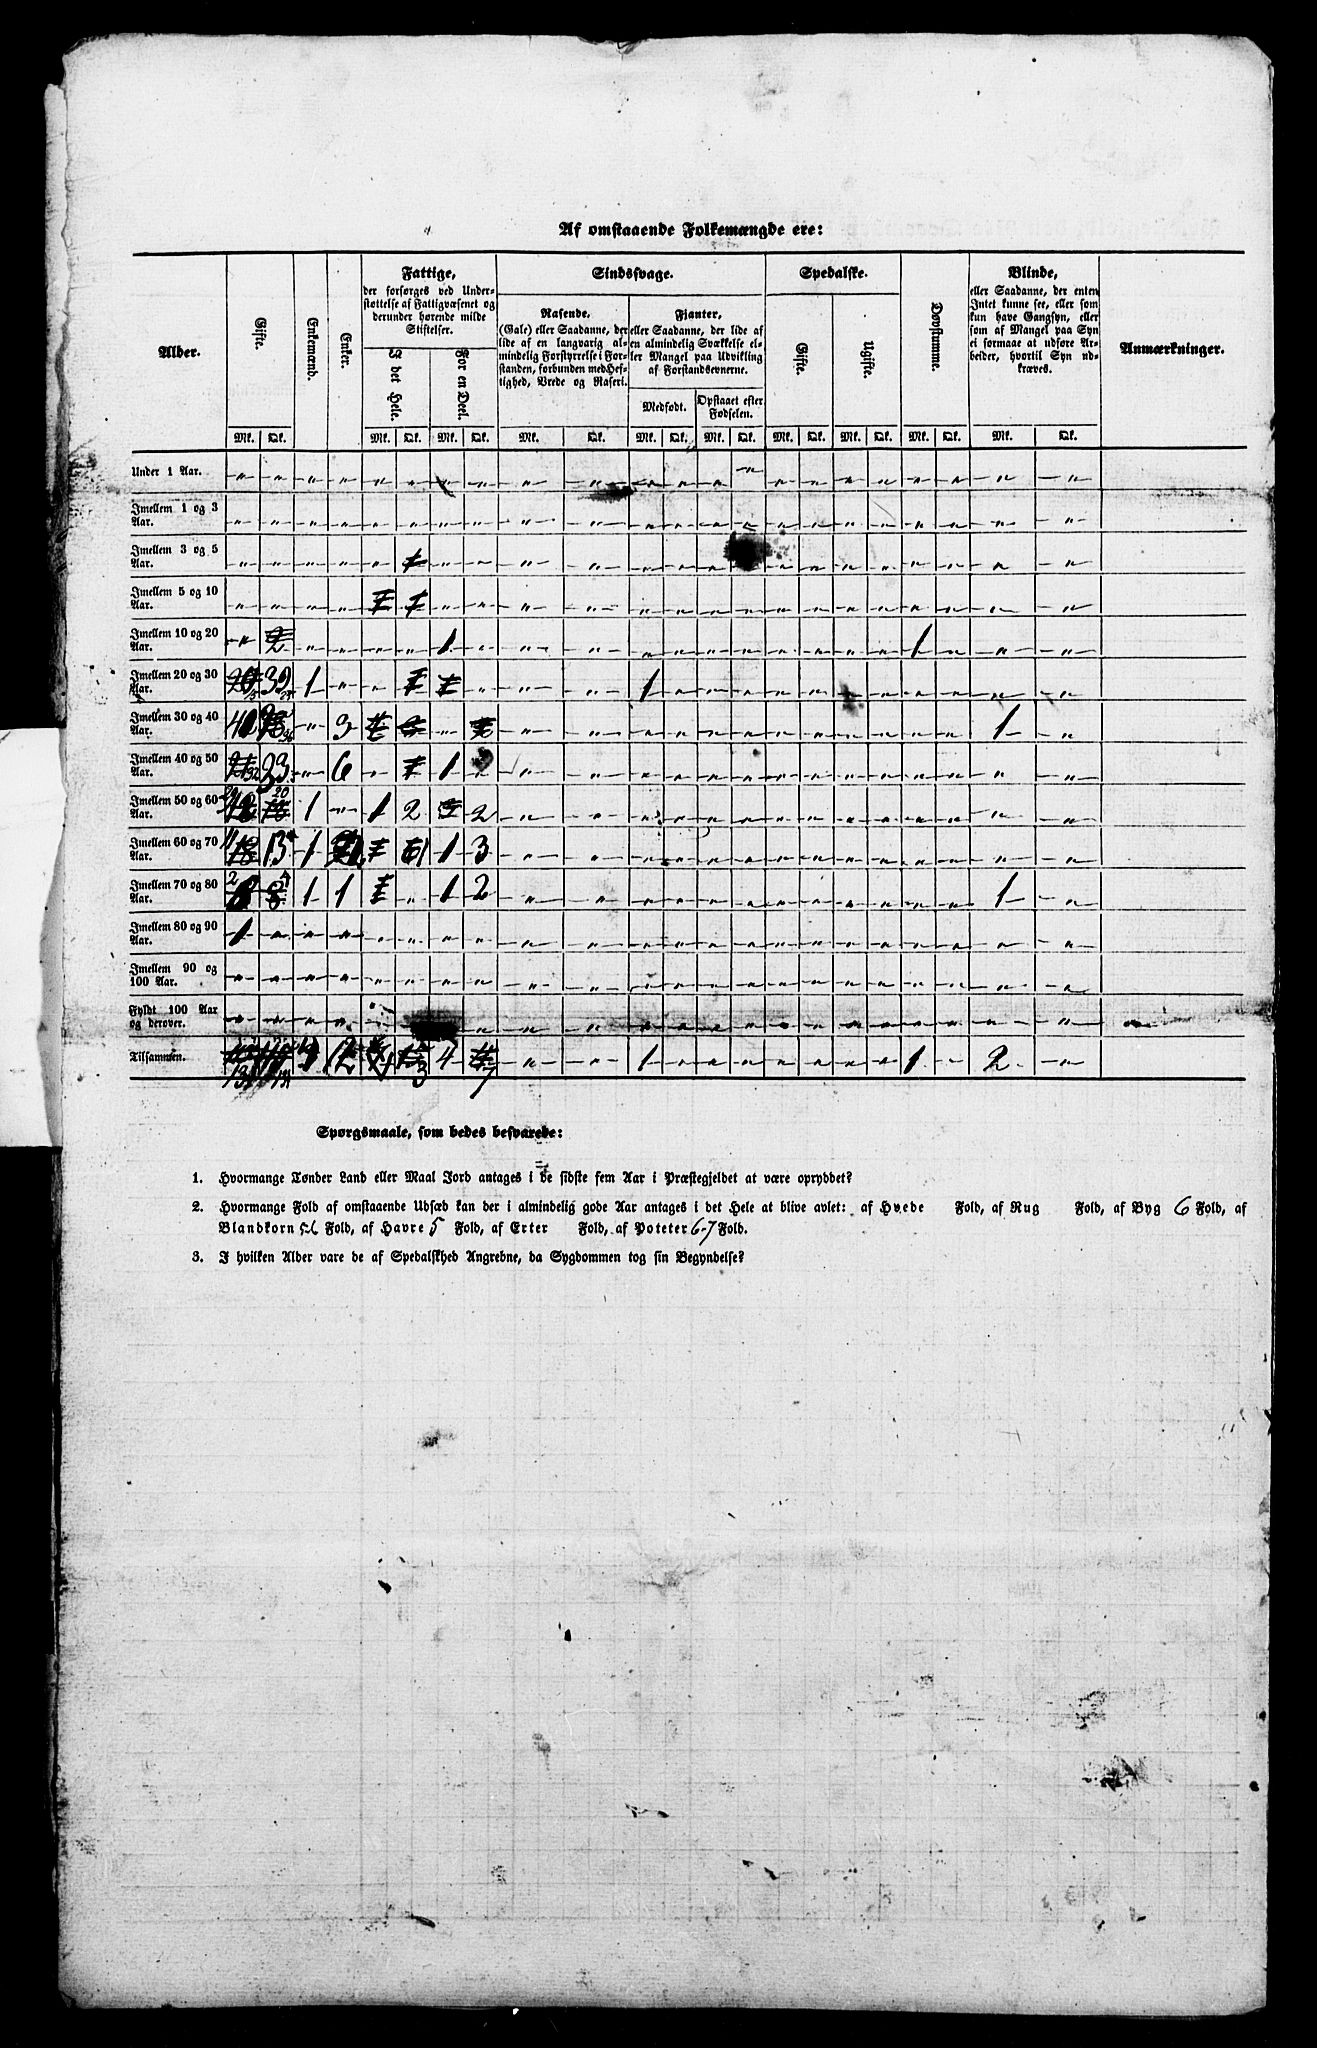 Af omstaaende Folkemængde ere:
Alder.
Gifte.
Enkemænd.
Enker.
Fattige,
der forsørges ved Under-
støttelse af Fattigvæsenet og
derunder hørende milde
Stiftelser.
I det Hele.
For en Deel.
Sindssvage.
Rasende.
(Gale) eller Saadanne, der
lide af en langvarig al-
mindelig Forstyrrelse i For-
standen, forbunden med Hef-
tighed, Vrede og Raseri.
Fjanter,
eller Saadanne, der lide af
en almindelig Svækkelse el-
ler Mangel paa Udvikling
af Forstandsevnerne.
Medfødt.
Opstaaet efter
Fødselen.
Spedalske.
Gifte.
Ugifte.
Døvstumme.
Blinde,
eller Saadanne, der enten
Intet kunne see, eller som
kun have Gangsyn, eller
som af Mangel paa Syn
ei formaae at udføre Ar-
beider, hvortil Syn ud-
kræves.
Anmærkninger.
Mk. Qk. Mk. Qk. Mk. Qk. Mk. Qk. Mk. Qk. Mk. Qk. Mk. Qk. Mk. Qk. Mk. Qk. Mk. Qk.
Under 1 Aar.
Imellem 1 og 3
Aar.
Imellem 3 og 5
Aar.
Imellem 5 og 10
Aar.
Imellem 10 og 20
Aar. 1 1
Imellem 20 og 30
Aar. 39 1 1
Imellem 30 og 40
Aar. 3 1
Imellem 40 og 50
Aar. 23 6 1
Imellem 50 og 60
Aar. 20 1 1 2 2
Imellem 60 og 70
Aar. 11 13 1 1 1 3
Imellem 70 og 80
Aar. 2 4 1 1 1 2 1
Imellem 80 og 90
Aar. 1
Imellem 90 og
100 Aar.
Fyldt 100 Aar
og derover.
Tilsammen. 12 4 1 1 2
3 7
Spørgsmaale, som bedes besvarede:
1. Hvormange Tønder Land eller Maal Jord antages i de sidste fem Aar i Præstegjeldet at være opryddet?
2. Hvormange Fold af omstaaende Udsæd kan der i almindelig gode Aar antages i det Hele at blive avlet: af Hvede Fold, af Rug Fold, af Byg 6 Fold, af
Blandkorn 5-6 Fold, af Havre 5 Fold, af Erter Fold, af Poteter 6-7 Fold.
3. I hvilken Alder vare de af Spedalskhed Angrebne, da Sygdommen tog sin Begyndelse?